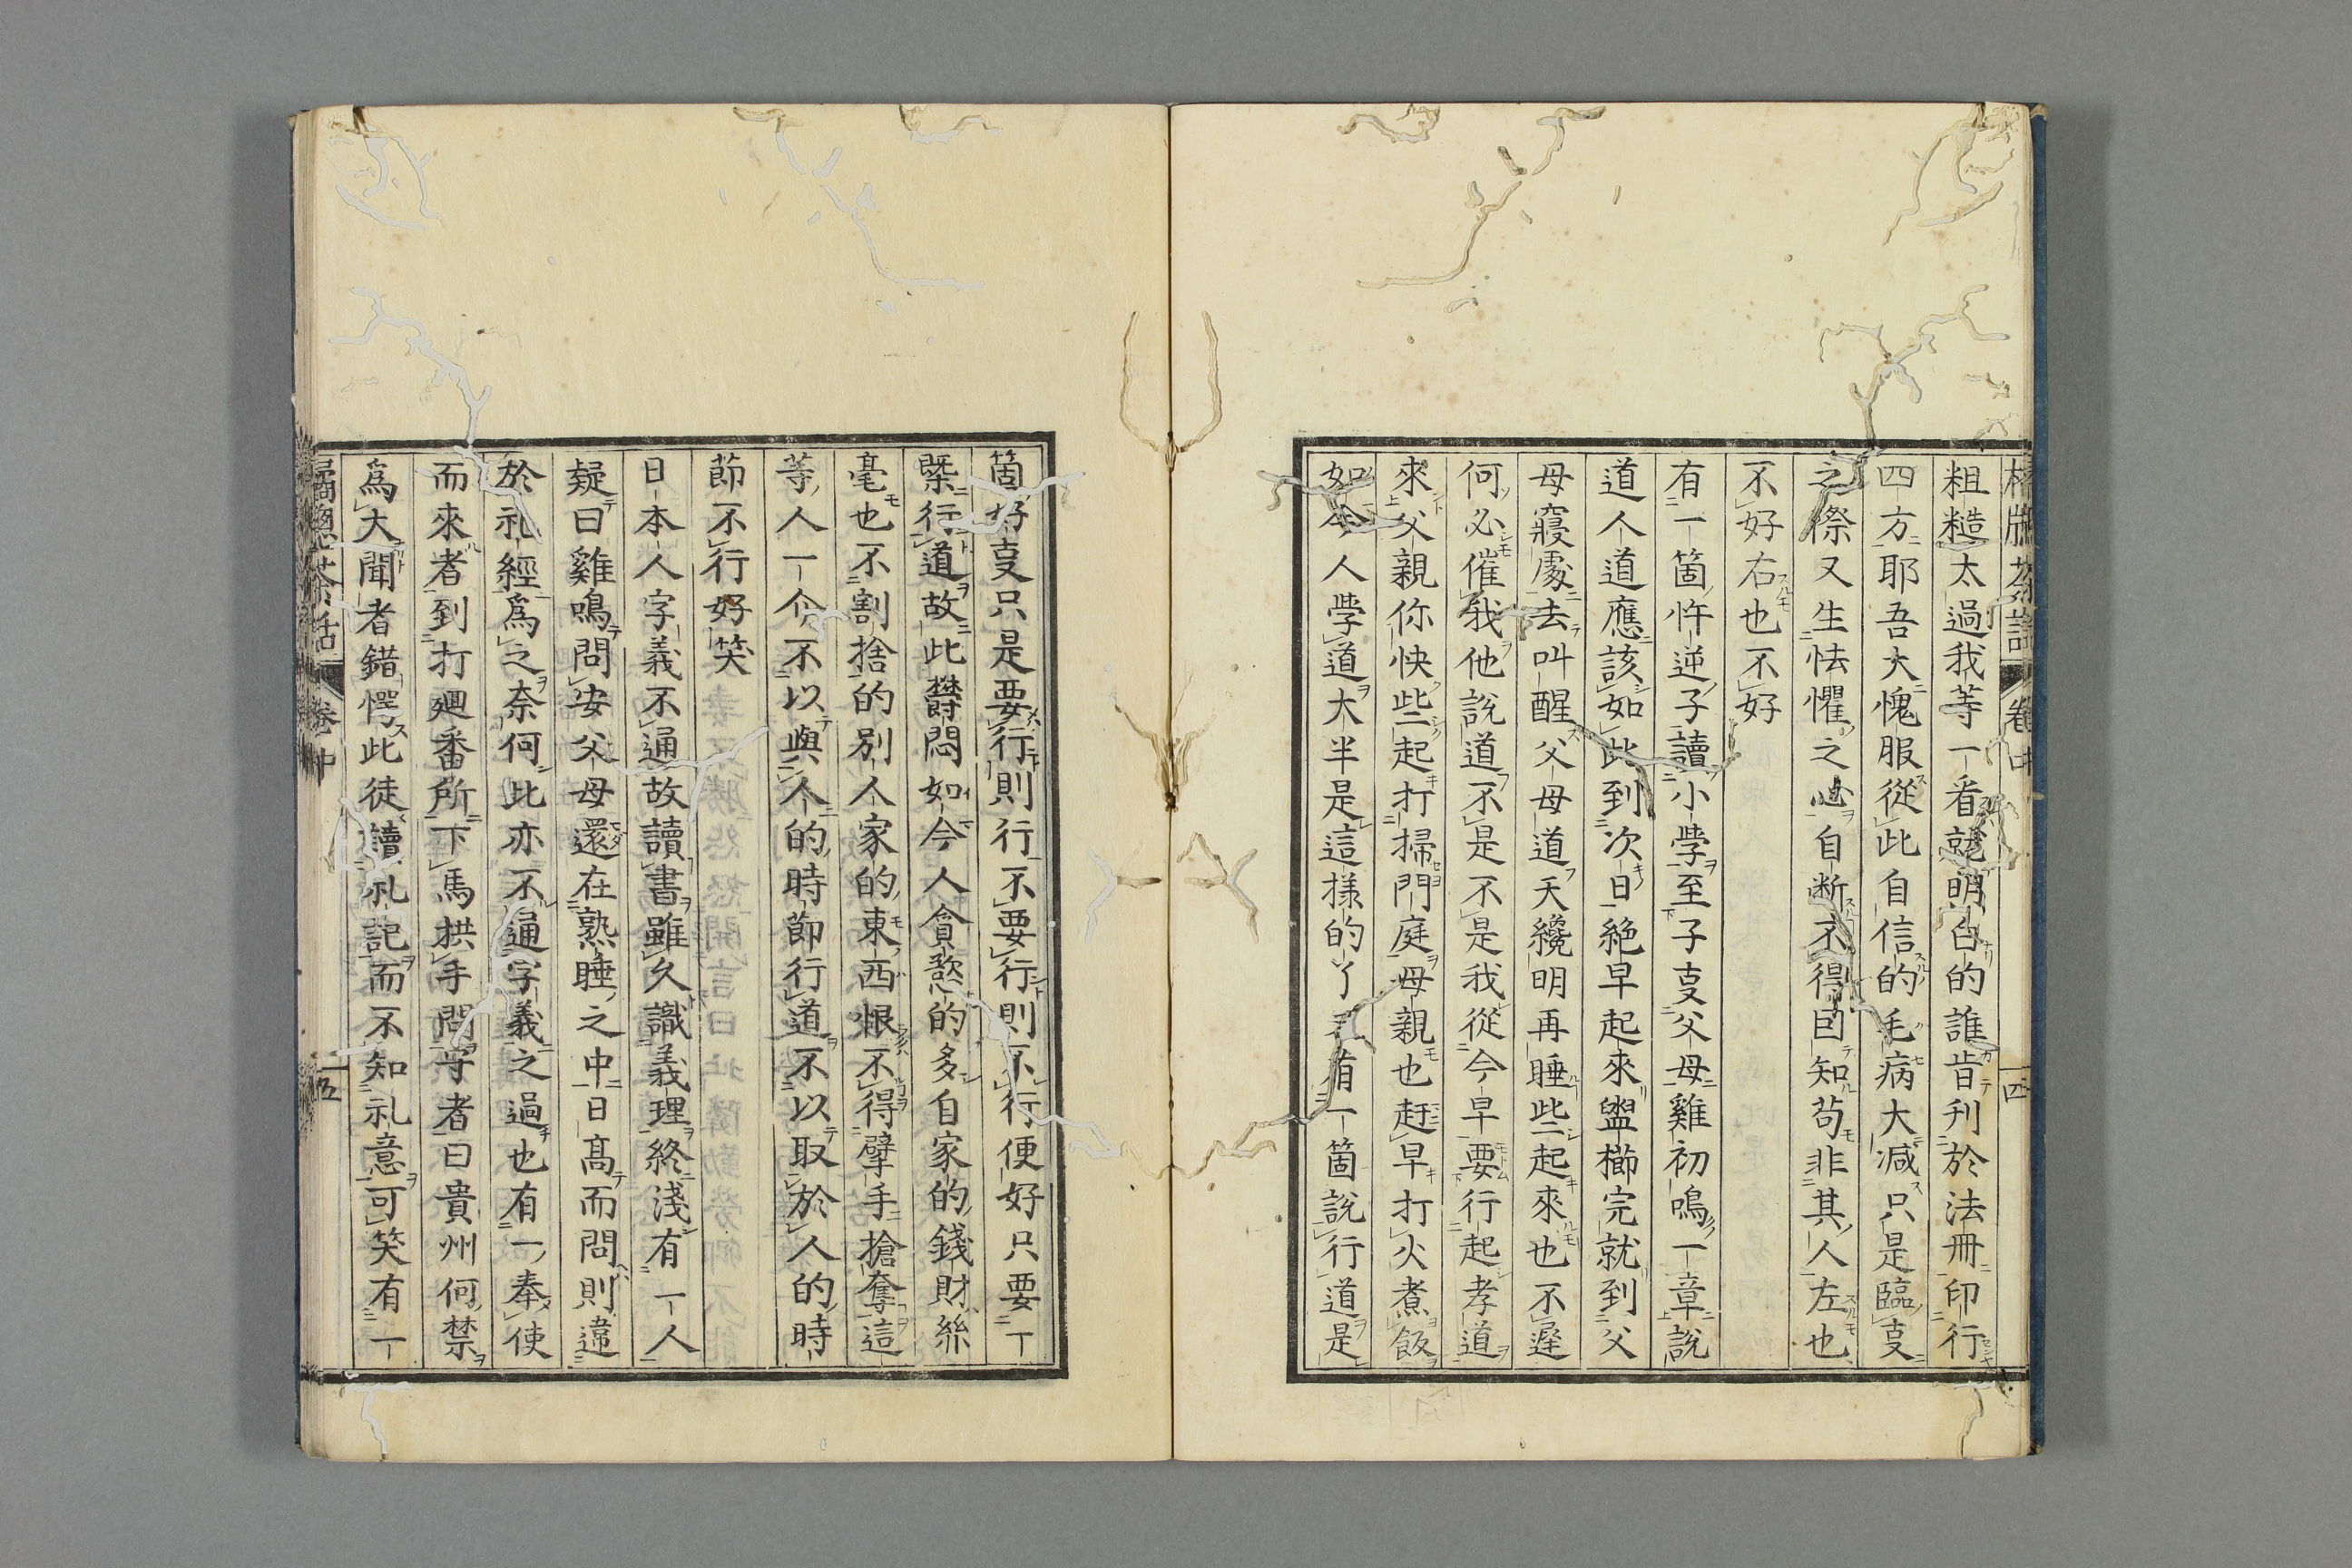 粗糙太過我等一看就明白的誰肯刋於法冊印行
四方耶吾大愧服從此自信的毛病大减只是臨叓
之傺又生怯懼之心自断不得囙知苟非其人左也
不好右也不好
有一箇忤逆子讀小學至子叓父母雞初鳴一章說
道人道應該如此到次日絶早起來盥櫛完就到父
母寢處去叫醒父母道天纔明再睡些起來也不遲
何必催我他說道不是不是我從今早要行起孝道
來父親你快些起打掃門庭母親也赶早打火煮飯
如今人學道大半是這様的了有一箇說行道是
箇好叓只是要行則行不要行則不行便好只要一
槩行道故此欝悶如今人貪慾的多自家的錢財絲
毫也不割捨的别人家的東西恨不得擘手搶奪這
等人一个不以與人的時節行道不以取於人的時
節不行好笑
日本人字義不通故讀書雖久識義理終淺有一人
疑曰雞鳴問安父母還在熟睡之中日髙而問則違
於礼經爲之奈何此亦不通字義之過也有一奉使
而來者到打廻番所下馬拱手問守者曰貴州何禁
爲大聞者錯愕此徒讀礼記而不知礼意可笑有一
卷中